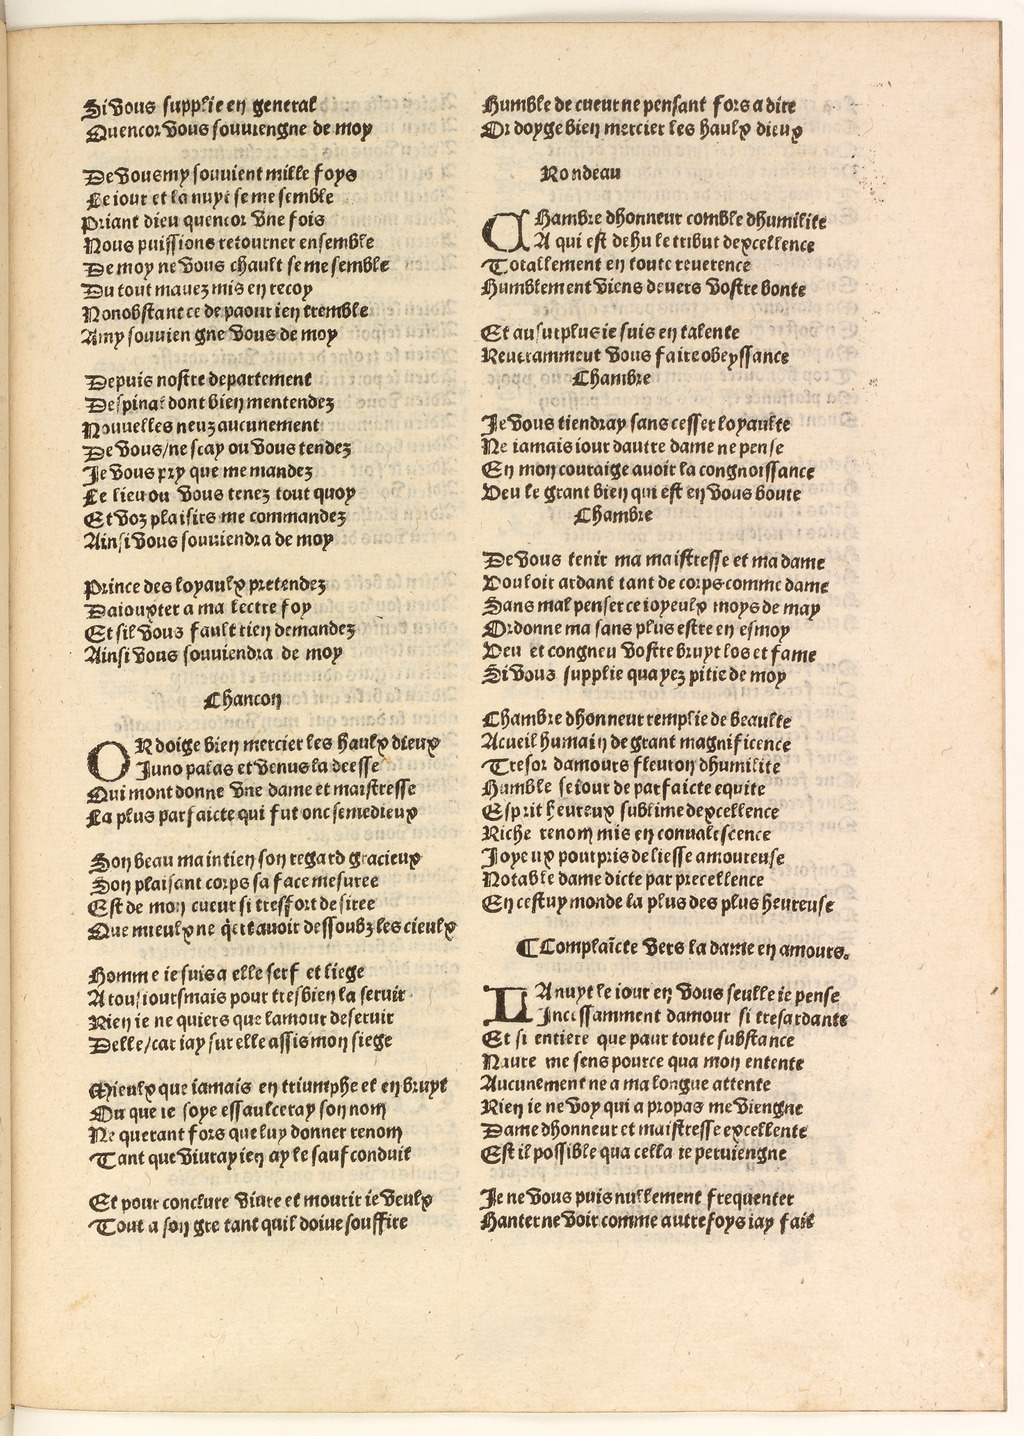 Si vous supplie en general
Quencor vous souuiengne de moy
De vous my souuient mille foys
Le iour et la nuyt se me semble
Priant dieu quencor vne fois
Nous puissions retourner ensemble
De moy ne vous chault se me semble
Du tout mauez mis en recoy
Nonobstant ce de paour ien tremble
Amy souuiengne vous de moy
Depuis nostre departement
Despinal dont bien mentendez
Nouuelles neuz aucunement
De vous/ne scay ou vous tendez
Je vous pry que me mandez
Le lieu ou vous tenez tout quoy
Et voz plaisirs me commandez
Ainsi vous souuiendra de moy
Prince des loyaulx pretendez
Daiouxter a ma lectre foy
Et sil vous fault rien demandez
Ainsi vous souuiendra de moy
Chancon
OR doige bien mercier les haulx dieux
Juno palas et venus la deesse
Qui mont donne vne dame et maistresse
La plus parfaicte qui fut onc semedieux
Son beau maintien son regard gracieux
Son plaisant corps sa face mesuree
Est de mon cueur si tresfort desiree
Que mieulx ne q̃rr auoir dessoubz les cieulx
Homme ie suis a elle serf et liege
A tousiours mais pour tresbien la seruir
Rien ie ne quiers que lamour deseruir
Delle/car iay sur elle assis mon siege
Mieulx que iamais en triumphe et en bruyt
Ou que ie soye essaulceray son nom
Ne querant fors que luy donner renom
Tant que viuray ien ay le sauf conduit
Et pour conclure viure et mourir ie veulx
Tout a son gre tant quil doiue souffire
Humble de cueur ne pensant fors a dire
Or doyge bien mercier les haulx dieux
Rondeau
CHambre dhonneur comble dhumilite
A qui est dehu le tribut dexcellence
Totallement en toute reuerence
Humblement viens deuers vostre bonte
Et au surplus ie suis en talente
Reuerammeut vous faire obeyssance
Chambre
Je vous tiendray sans cesser loyaulte
Ne iamais iour dautre dame ne pense
En mon couraige auoir la congnoissance
Veu le grant bien qui est en vous boute
Chambre
De vous tenir ma maistresse et ma dame
Vouloir ardant tant de corps comme dame
Sans mal penser ce ioyeulx moys de may
Ordonne ma sans plus estre en esmoy
Veu et congneu vostre bruyt los et fame
Si vous supplie quayez pitie de moy
Chambre dhonneur remplie de beaulte
Acueil humain de grant magnificence
Tresor damours fleuron dhumilite
Humble seiour de parfaicte equite
Esprit heureux sublime dexcellence
Riche renom mis en conualescence
Joyeux pourpris de liesse amoureuse
Notable dame dicte par precellence
En cestuy monde la plus des plus heureuse
¶ Complaicte vers la dame en amours.
LA nuyt le iour en vous seulle ie pense
Incessamment damour si tresardante
Et si entiere que paur toute substance
Naure me sens pource qua mon entente
Aucunement ne a ma longue attente
Rien ie ne voy qui a propas me viengne
Dame dhonneur et maistresse excellente
Est il possible qua cella ie peruiengne
Je ne vous puis nullement frequenter
Hanter ne voir comme autrefoys iay fait